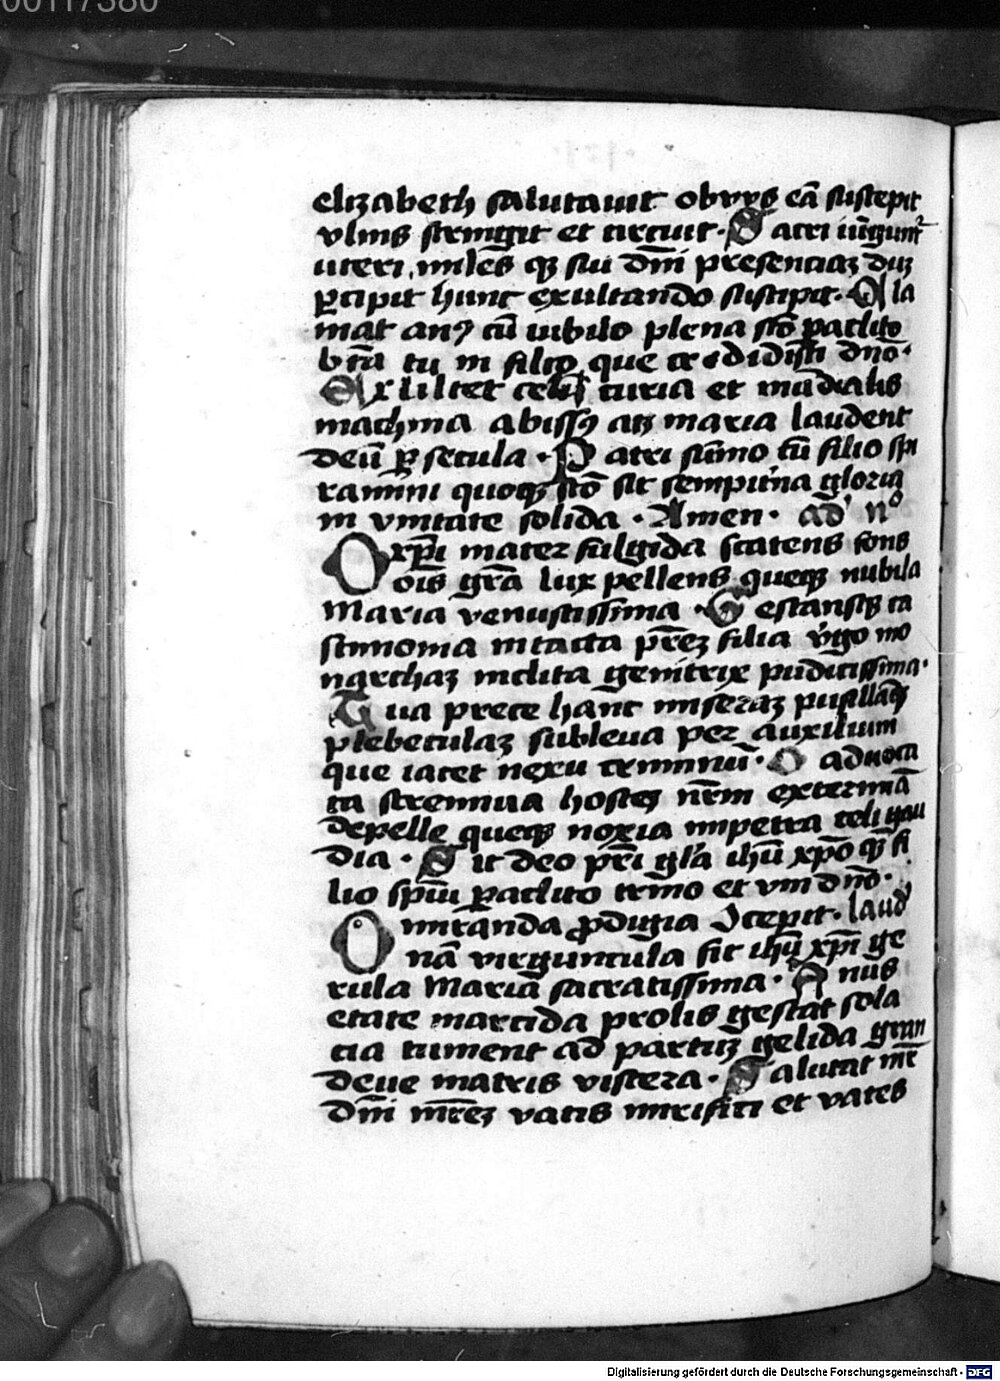 00117380
elizabeth salutauit obvys eā suscepit
vlnis stringit et circuit · Sacri iūgunt᷑
uteri miles̄ qꝫ sui dm̄i presenciaꝫ duꝫ
ꝑcipit hunc exultando suscipit · Cla
mat anꝰ cū iubilo plena sc̄o paclito
bt̄a tu in filio que credidisti dn̄o ·
Exultet celi curia et mūdialis
machina abissꝰ atqꝫ maria laudent
deū ꝑ secula · Patri sūmo cū filio spi
ramini quoqꝫ sc̄o sit sempit'na gloria
in vnitate solida · Amen · ad nᵒ
O xp̄i mater fulgida scatens fons
ois̄ gr̄a lux pellens queqꝫ nubila
Maria venustissima · Gestansqꝫ ca
stimonia intacta pr̄eꝫ filia v̓go mo
narchaꝫ inclita genitrix pudicissima ·
Tua prece hanc miseraꝫ pusillāqꝫ
plebeculaꝫ subleua per auxilium
que iacet nexu criminū · O aduoca
ta strennua hostes nr̄m extermīa
depelle queqꝫ noxia impetra celi gau
dia · Sit deo pr̄i gl̓a ihū xp̄o qꝫ fi
lio sp̄iu ꝑaclito trīno et vni dn̄o ·
O miranda ꝓdigia Icepit · laud'
nā virguncula fit ihū xp̄i ge
rula Mariā sacratissima · Anus
etate marcida prolis gestat sola
cia tument ad partuꝫ gelida gran
deue matris viscera · Salutat mr̄
dm̄i mr̄eꝫ vatis mirifici et vates
Digitalisierung gefördert durch die Deutsche Forschungsgemeinschaft - DFG